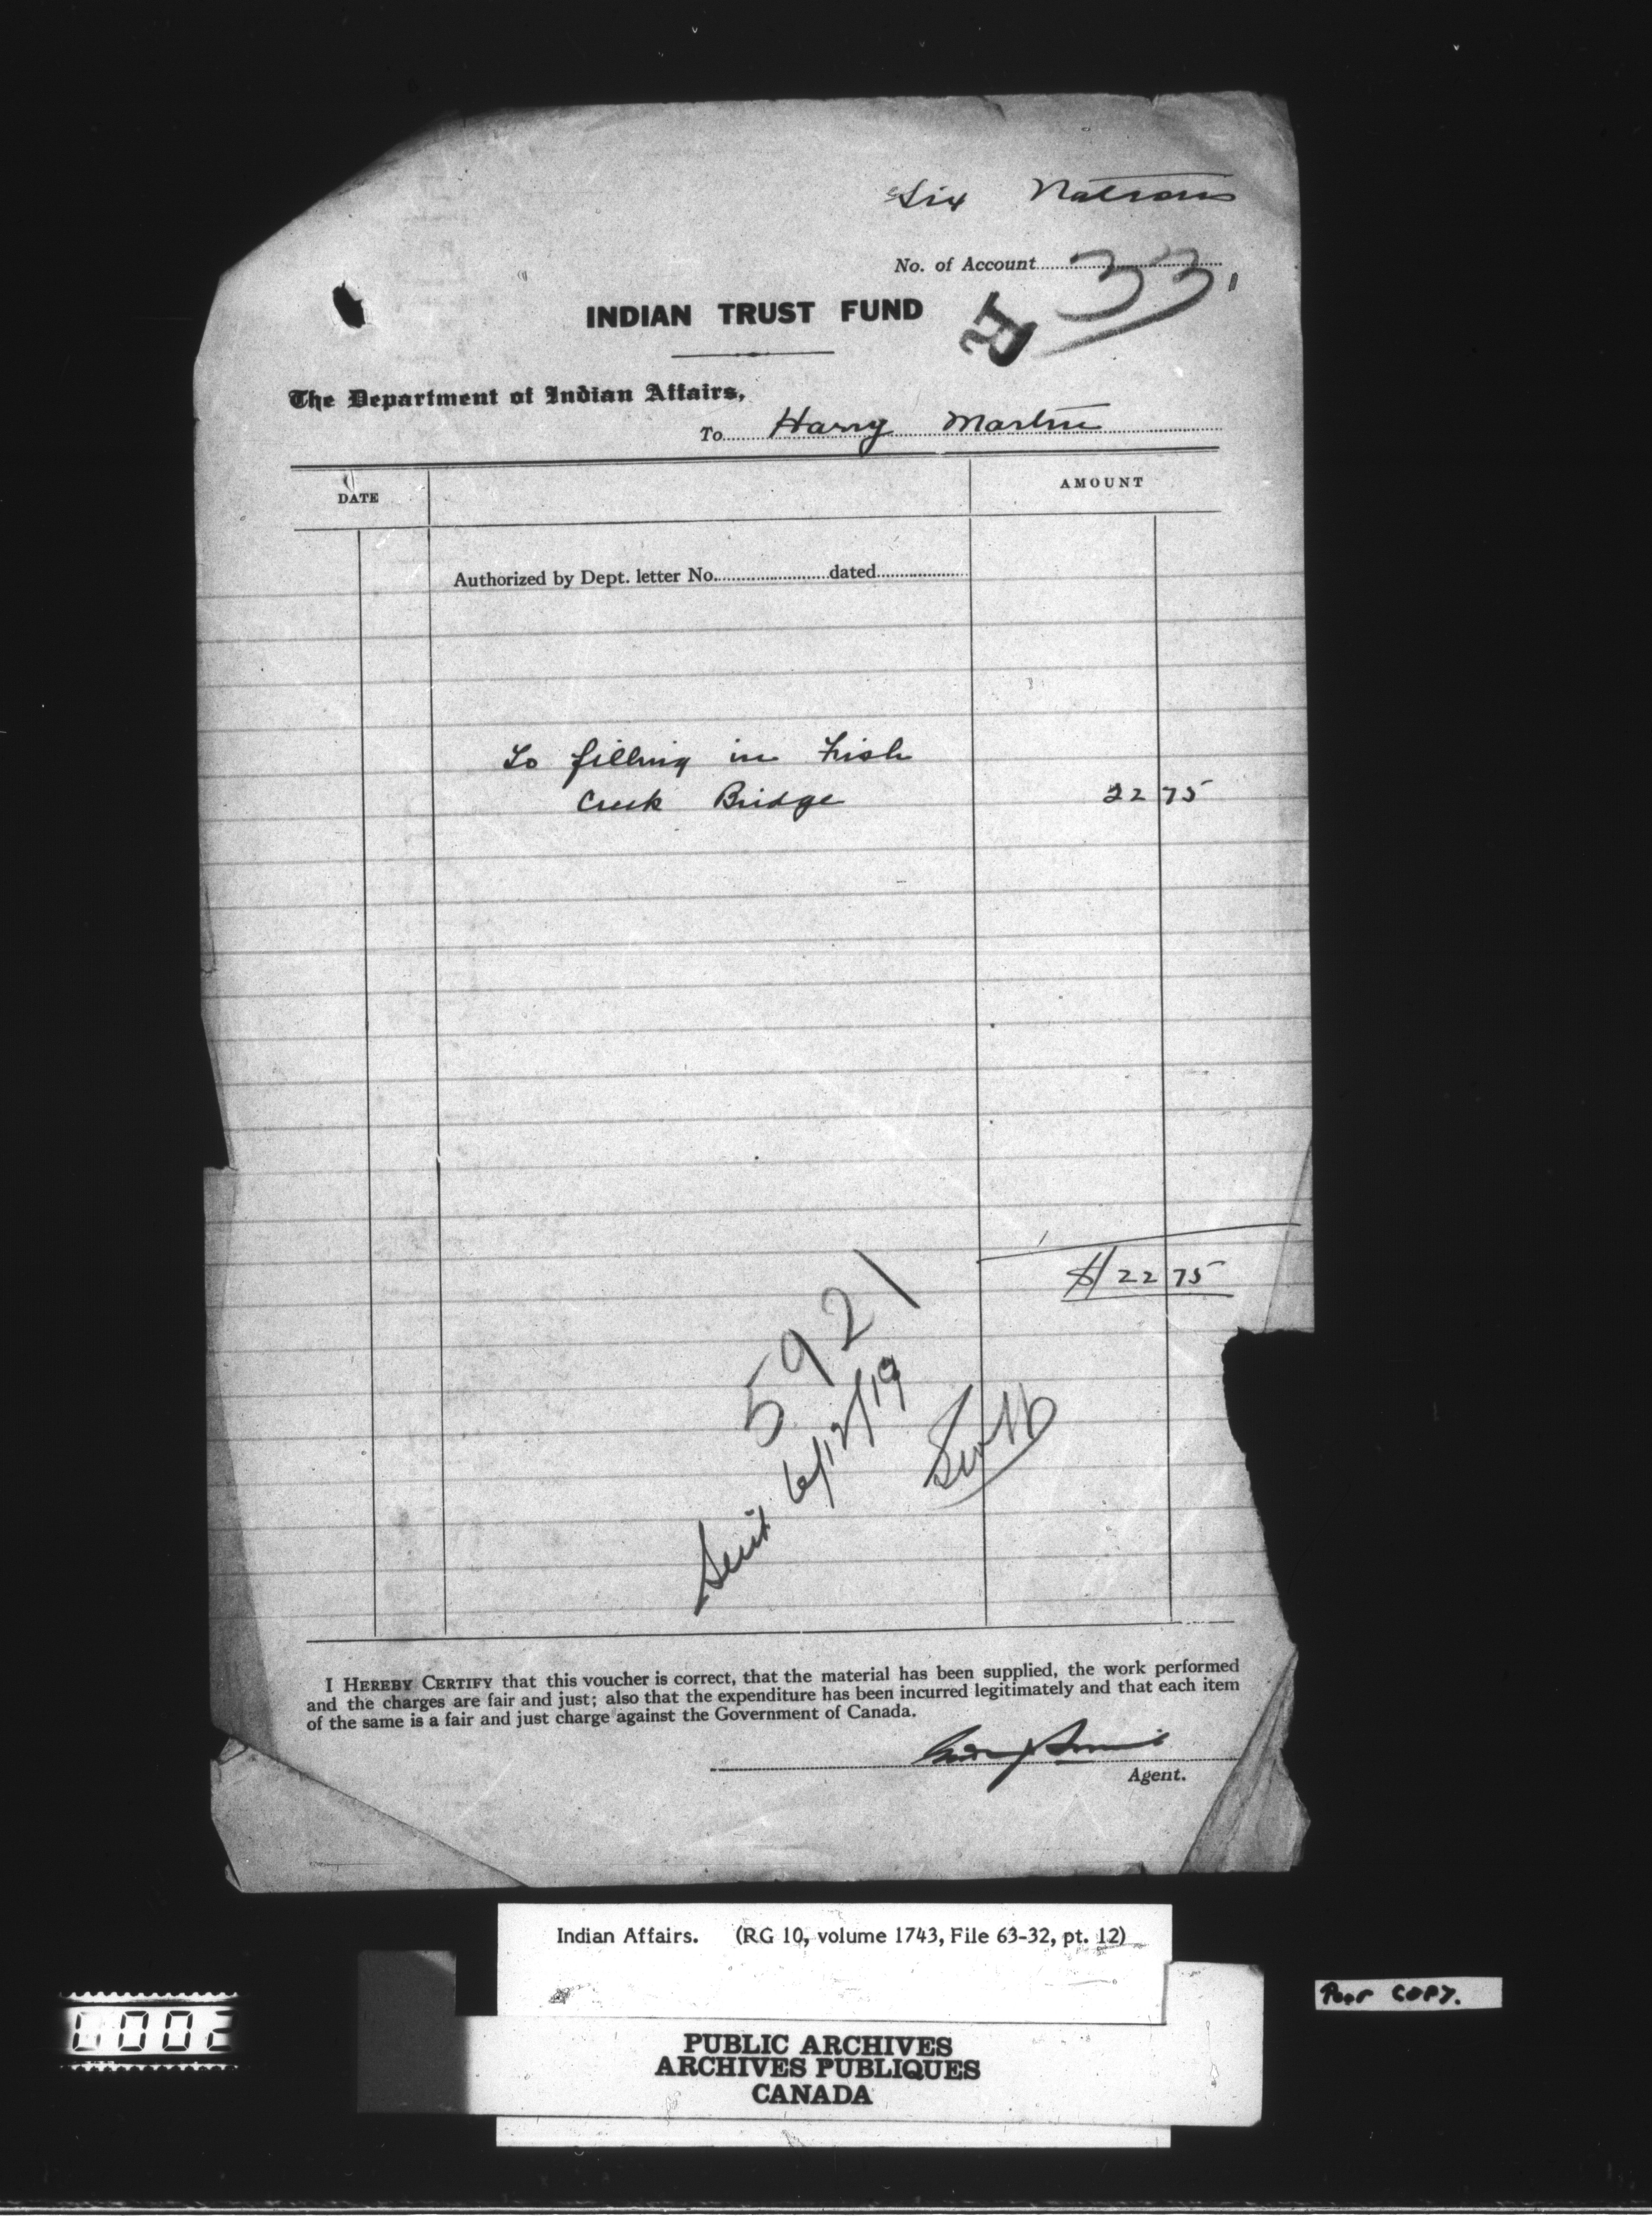 Six Nations
No. of Account 33
INDIAN TRUST FUND
R
The Department of Indian Affairs,
To Harry Martin
DATE
AMOUNT
Authorized by Dept. letter No. dated
To filling in Irish
Creek Bridge 22 75
$ 22 75
5921
Sent 6/12/19
I HEREBY CERTIFY that this voucher is correct, that the material has been supplied, the work performed
and the charges are fair and just; also that the expenditure has been incurred legitimately and that each item
of the same is a fair and just charge against the Government of Canada.
Agent.
Indian Affairs. (RG 10, volume 1743, File 63-32, pt. 12)
Poor COPY.
0002
PUBLIC ARCHIVES
ARCHIVES PUBLIQUES
CANADA